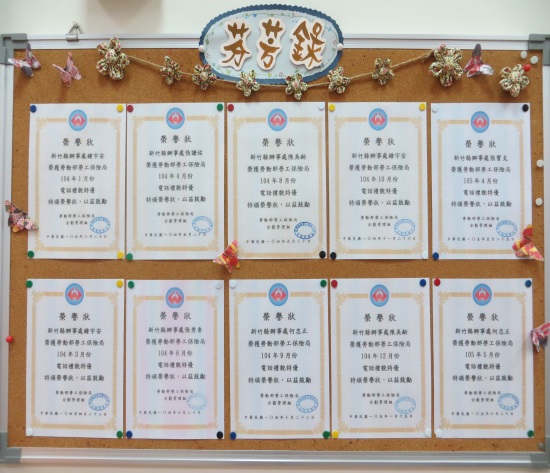 芬芳錄
榮譽狀
新竹縣辦事處鍾宇安
榮獲勞動部勞工保險局
104年1月份
電話禮貌特優
特頒榮譽狀，以茲鼓勵
勞動部勞工保險局
企劃管理組
榮譽狀
榮獲勞動部勞工保險局
104年4月份
電話禮貌特優
特頒榮譽狀，以茲鼓勵
勞動部勞工保險局
企劃管理組
榮譽狀
新竹縣辦事處陳美齡
榮獲勞動部勞工保險局
104年8月份
電話禮貌特優
特頒榮譽狀，以茲鼓勵
勞動部勞工保險局
企劃管理組
榮譽狀
新竹縣辦事處鍾宇安
榮獲勞動部勞工保險局
104年10月份
電話禮貌特優
特頒榮譽狀，以茲鼓勵
勞動部勞工保險局
企劃管理組
榮譽狀
榮獲勞動部勞工保險局
105年4月份
電話禮貌特優
特頒榮譽狀，以茲鼓勵
勞動部勞工保險局
企劃管理組
榮譽狀
新竹縣辦事處鍾宇安
榮獲勞動部勞工保險局
104年3月份
電話禮貌特優
特頒榮譽狀，以茲鼓勵
勞動部勞工保險局
企劃管理組
榮譽狀
榮獲勞動部勞工保險局
104年6月份
電話禮貌特優
特頒榮譽狀，以茲鼓勵
勞動部勞工保險局
企劃管理組
榮譽狀
新竹縣辦事處何忠正
榮獲勞動部勞工保險局
104年9月份
電話禮貌特優
特頒榮譽狀，以茲鼓勵
勞動部勞工保險局
企劃管理組
榮譽狀
新竹縣辦事處陳美齡
榮獲勞動部勞工保險局
104年12月份
電話禮貌特優
特頒榮譽狀，以茲鼓勵
勞動部勞工保險局
企劃管理組
榮譽狀
新竹縣辦事處何忠正
榮獲勞動部勞工保險局
105年5月份
電話禮貌特優
特頒榮譽狀，以茲鼓勵
勞動部勞工保險局
企劃管理組